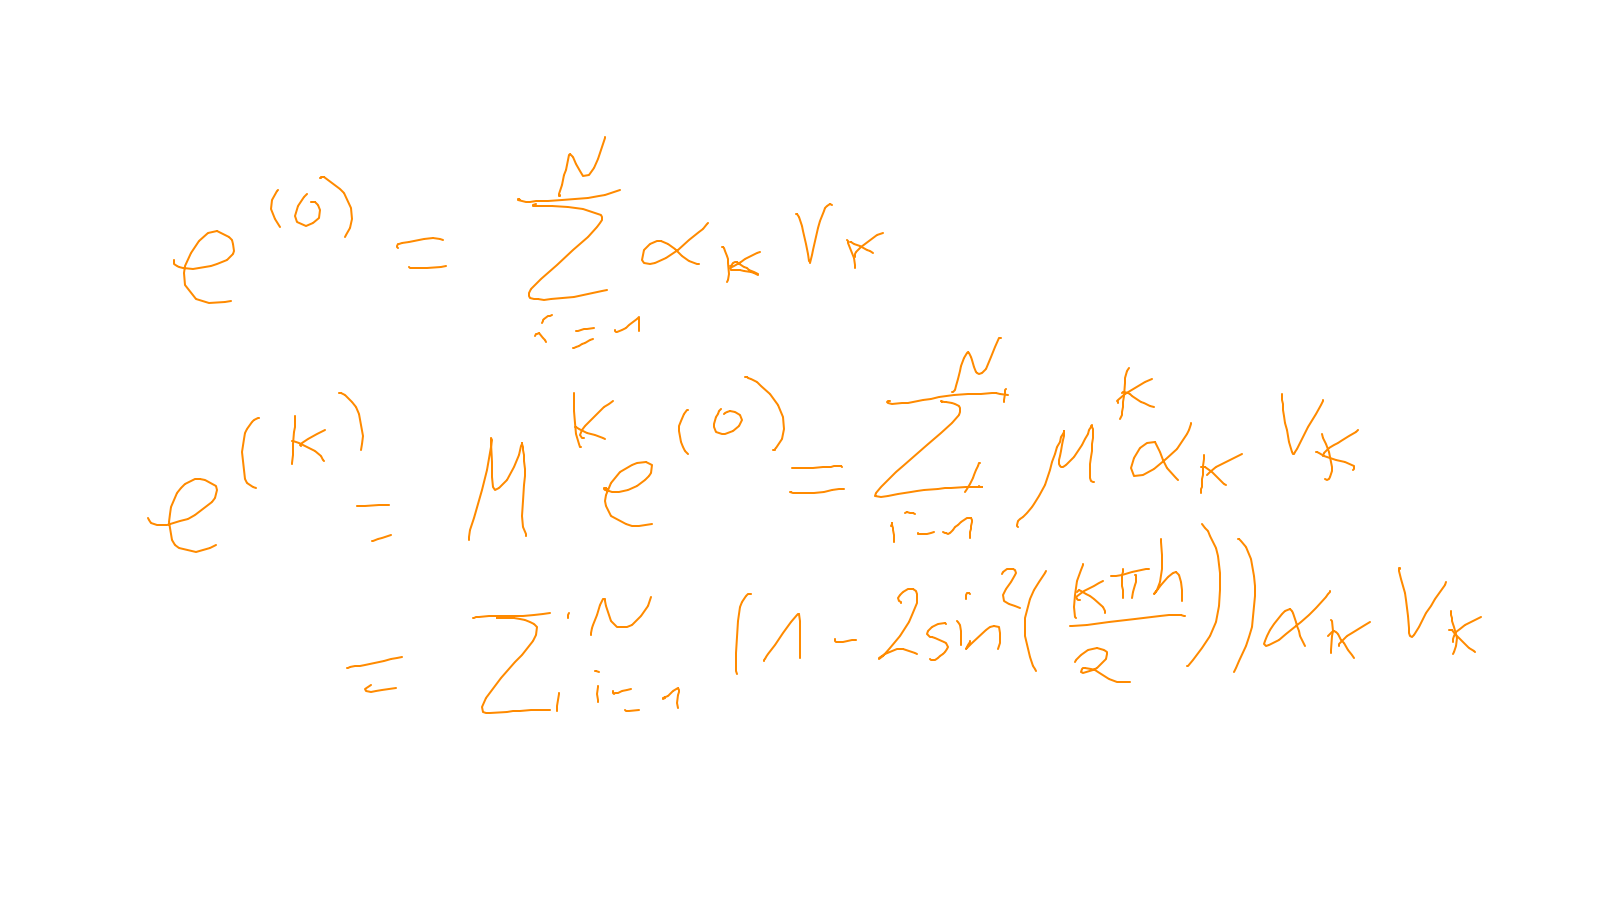 e^{(0)} = \sum_{i=1}^{N} \alpha_k v_k
e^{(k)} = M^k e^{(0)} = \sum_{i=1}^{N} \mu^k \alpha_k v_k
= \sum_{i=1}^{N} (1 - 2\sin^2(\frac{k\pi h}{2})) \alpha_k v_k